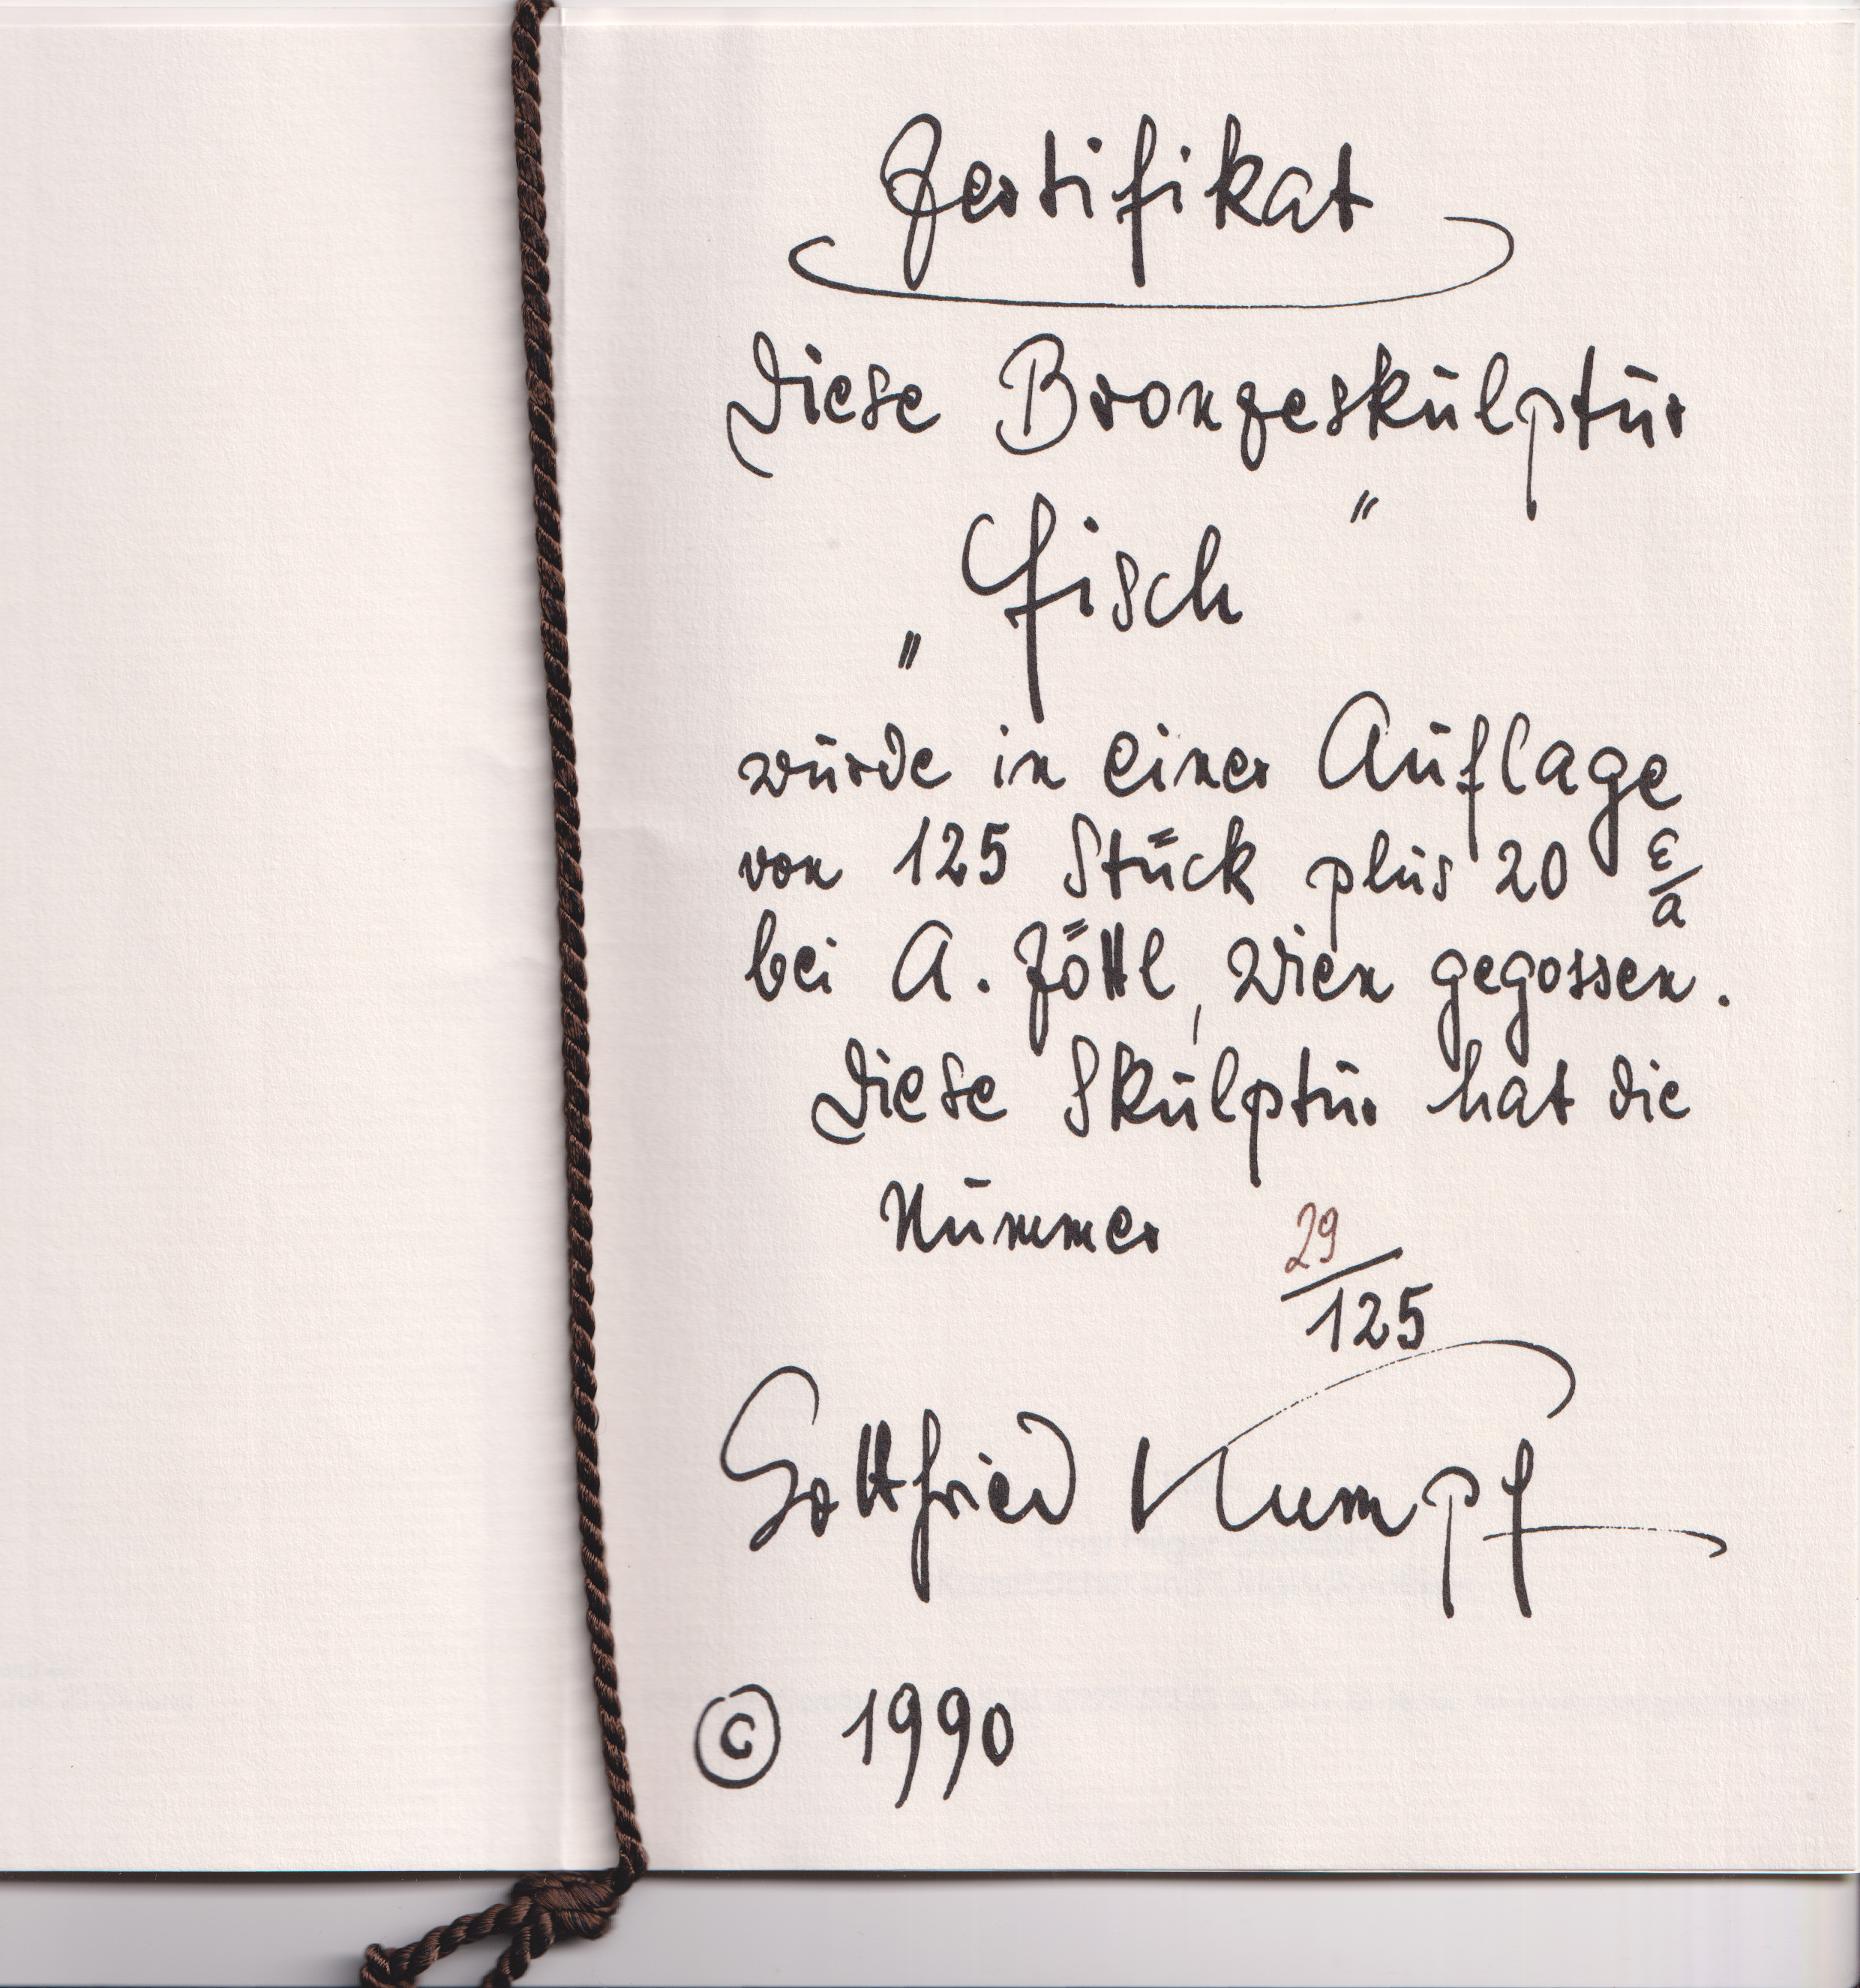 Zertifikat
Diese Bronzeskulptur
„Fisch"
wurde in einer Auflage
von 125 Stück plus 20 E/a
bei A. Zöttl, Wien gegossen.
Diese Skulptur hat die
Nummer 29/125
Gottfried Kumpf
© 1990